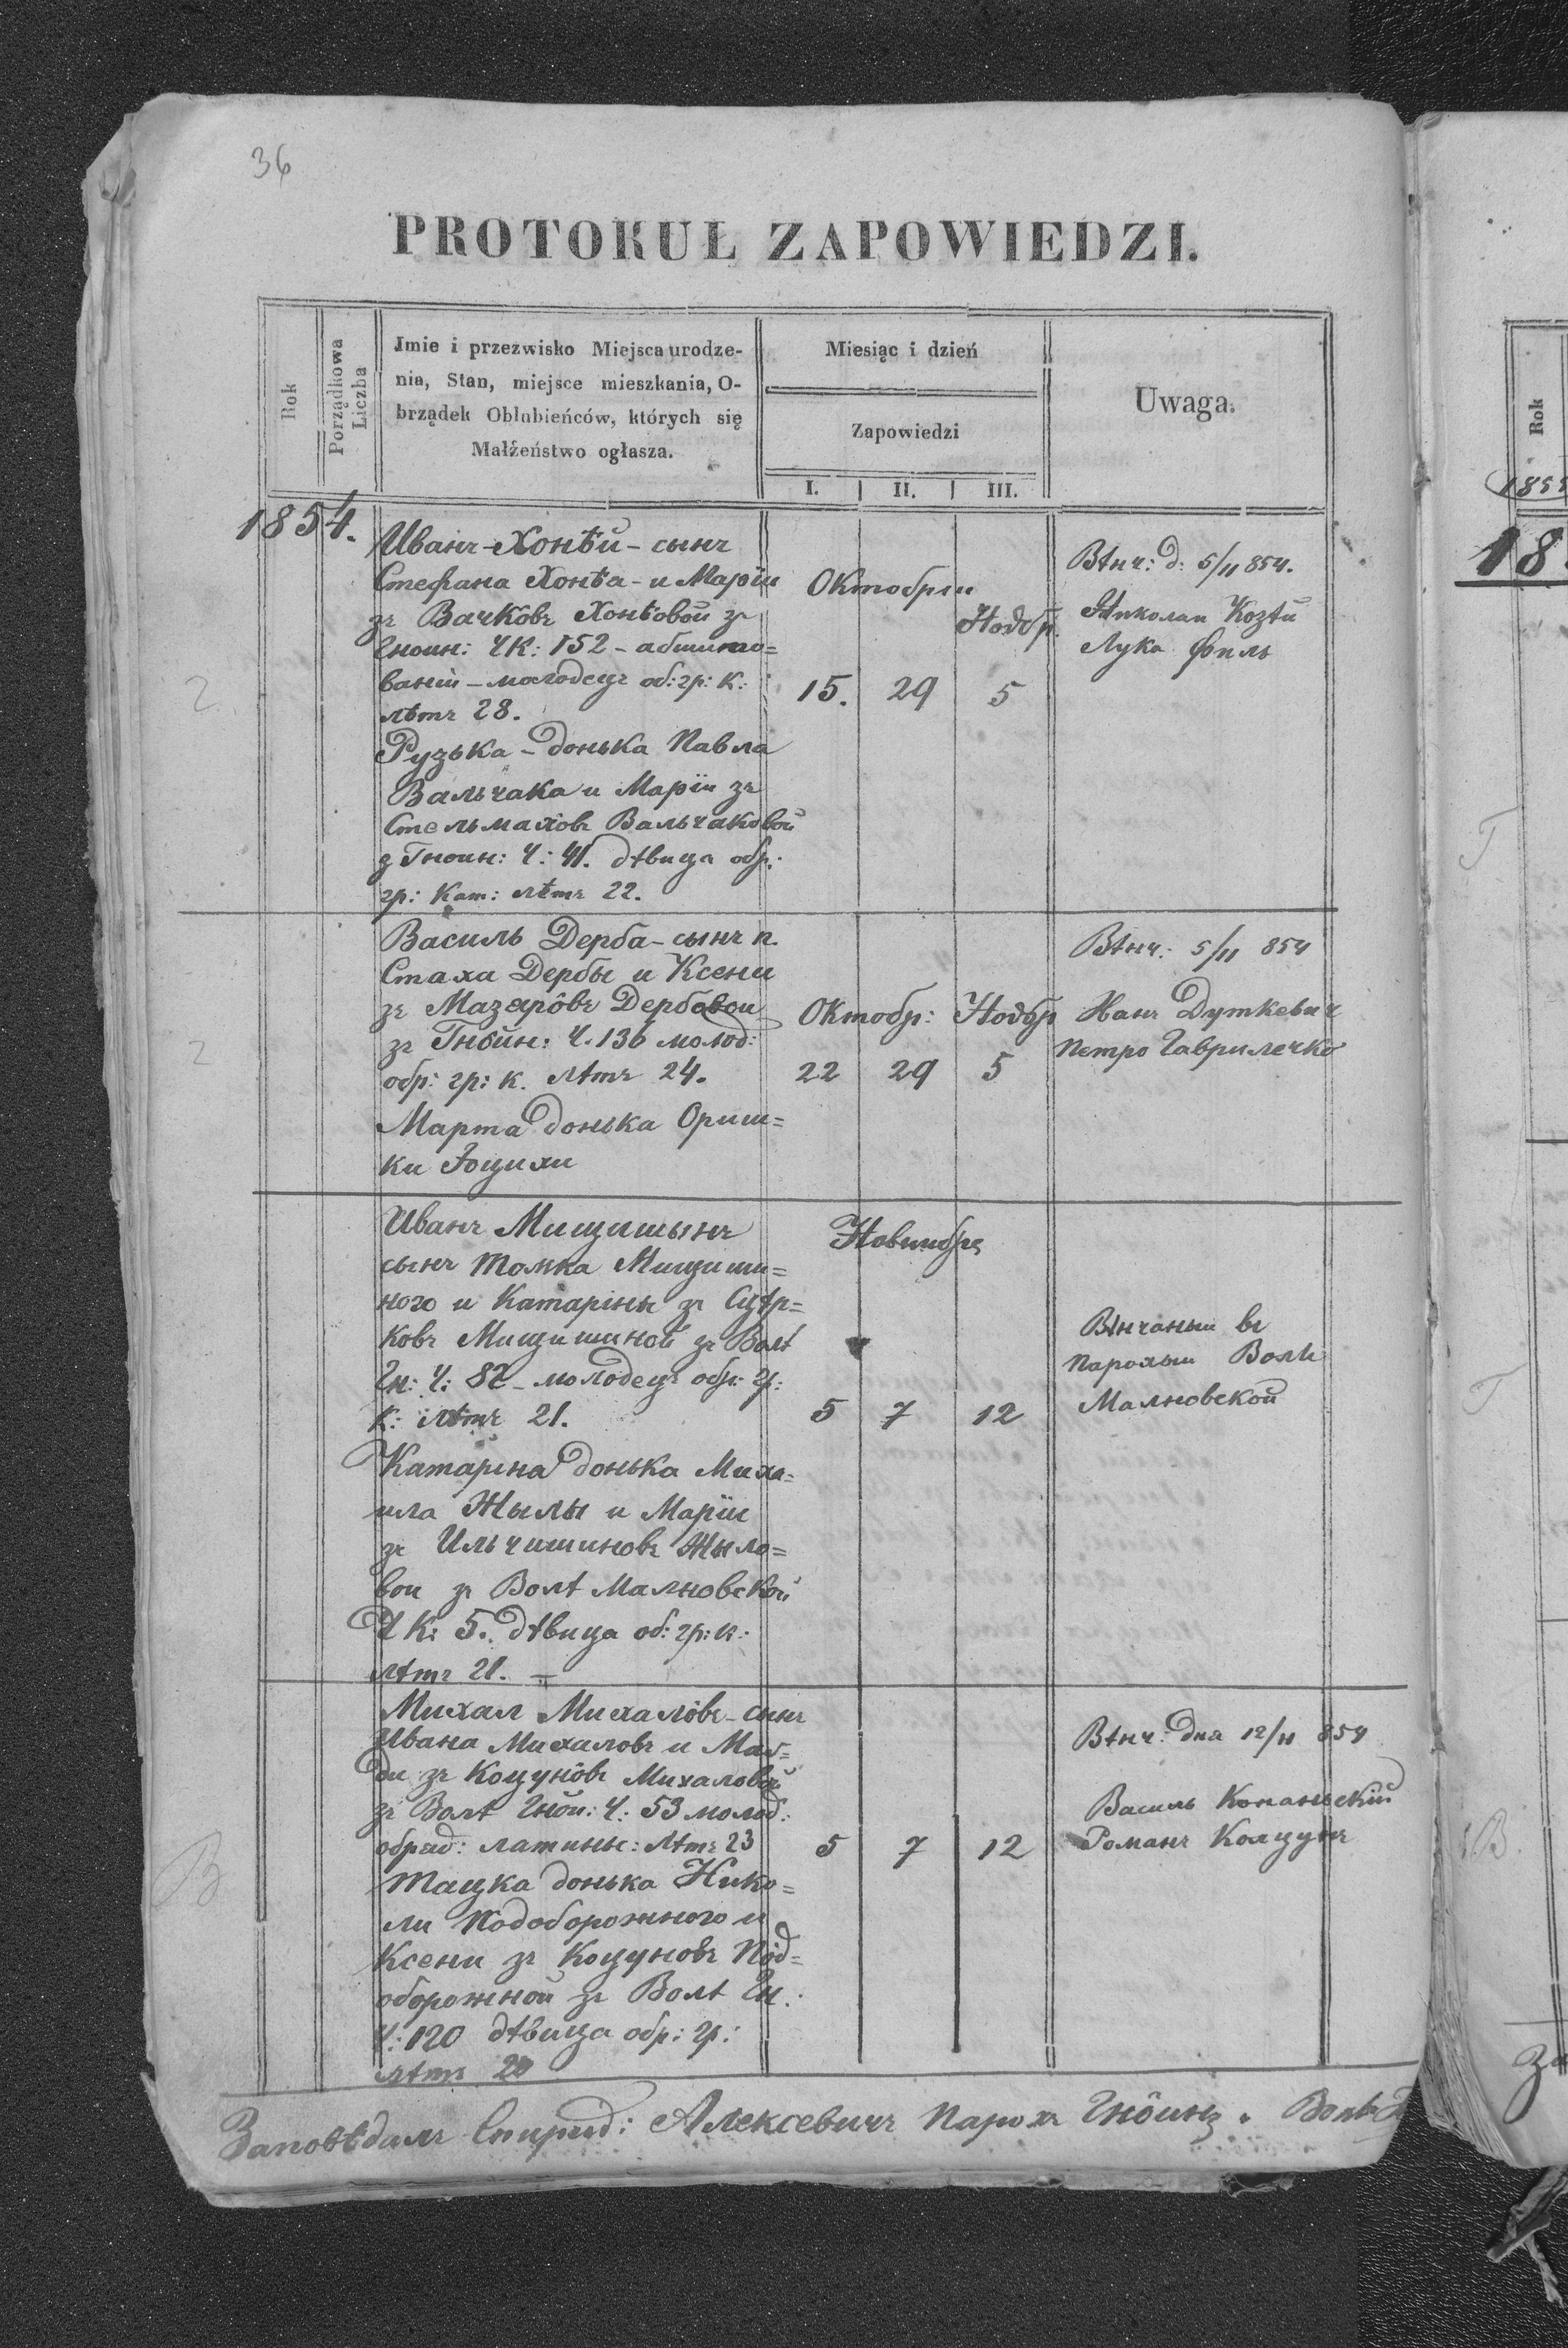 36
PROTOKUŁ ZAPOWIEDZI.
Rok
Porządkowa Liczba
Imie i przezwisko Miejsca urodze-
nia, Stan, miejsce mieszkania, O-
brządek Oblubieńców, których się
Małżeństwo ogłasza.
Miesiąc i dzień
Zapowiedzi
I. II. III.
Uwaga.
1854.
Иванъ - Хонѣй - сынъ
Стефана Хонѣа - и Маріи
зъ Вачкôвъ Хонѣовой зъ
Гноин: ЧК: 152 - абшито=
ваній - молодецъ об: гр: К:
лѣтъ 28.
Рузька - донька Павла
Вальчака и Маріи зъ
Стельмахôвъ Вальчаковой
з Гноин: Ч: 41. дѣвица обр:
гр: Кат: лѣтъ 22.
Октобріи
Ноябр.
15. 29 5
Вѣнч: д: 5/11 854.
Николай Козѣй
Лука Филь
2
Василь Дерба - сынъ п.
Стаха Дербы и Ксени
зъ Мазярôвъ Дербовои
зъ Гнôйн: Ч. 136 молод:
обр: гр: к. лѣтъ 24.
Марта донька Ориш=
ки Юцихи
Октобр: Ноябр
22 29 5
Вѣнч: 5/11 854
Ианъ Дуткевич
Петро Гаврилечко
2
Иванъ Мищишынъ
сынъ Томка Мищиши=
ного и Катаріны зъ Сцѣр=
ковъ Мищишиной зъ Волѣ
Гн: Ч: 82 - молодецъ обр: гр:
к: лѣтъ 21.
Катаріна донька Миха=
ила Жылы и Маріи
зъ Ильчишиновъ Жыло=
вои зъ Волѣ Малновской
Ч К: 5. дѣвица об: гр: к:
лѣтъ 21. —
Новембра
5 7 12
Вѣнчаный въ
Парохыи Волѣ
Малновской
Михал Михалôвъ - сынъ
Ивана Михаловъ и Маг=
ди зъ Коцунôвъ Михаловой
зъ Волѣ Гнôй: Ч: 53 молод:
обряд: латины: лѣтъ 23
Тацка донька Нико=
ли Подоборожного и
Ксени зъ Коцуновъ Пôд=
оборожной зъ Волѣ Гн:
Ч: 120 дѣвица обр: гр:
лѣтъ
5 7 12
Вѣнч: дна 12/11 854
Василь
Романъ Коацунъ
В
Заповѣдалъ Спирид: Алексевичъ Парохъ
Rok
18